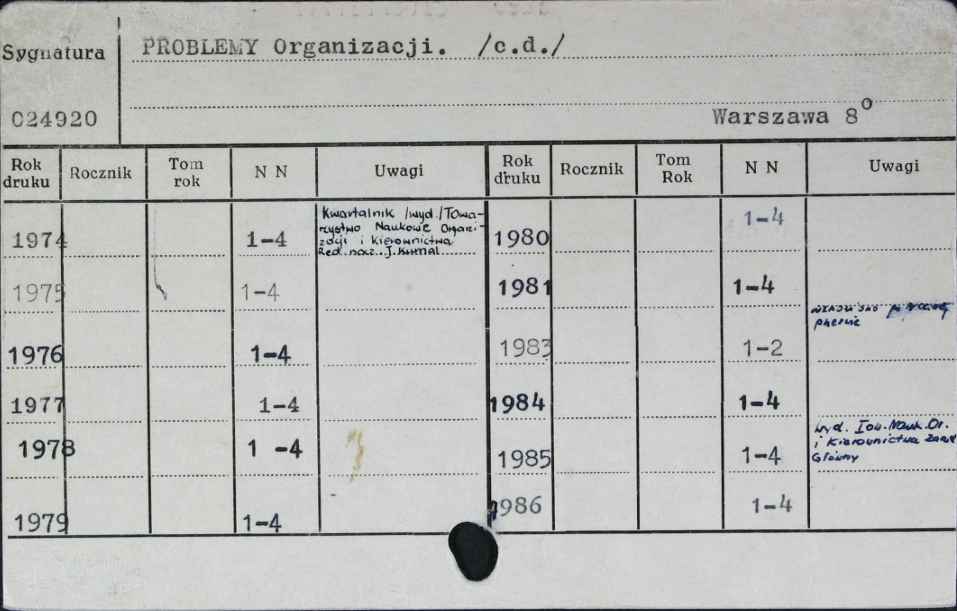 Sygnatura
PROBLEMY Organizacji. /c.d./
024920
Warszawa 8°
Rok druku Rocznik Tom rok N N Uwagi Rok druku Rocznik Tom Rok N N Uwagi
1974 1-4 Kwartalnik /wyd./Towa-
rzystwo Naukowe Organi-
zacji i kierownictwa
Red. nacz. J. Kurnal
1975 1-4
1976 1-4
1977 1-4
1978 1 -4
1979 1-4
1980 1-4
1981 1-4
1983 1-2
1984 1-4
1985 1-4 wyd. Tow. Nauk. Or.
i Kierownictwa Zarząd
Główny
1986 1-4